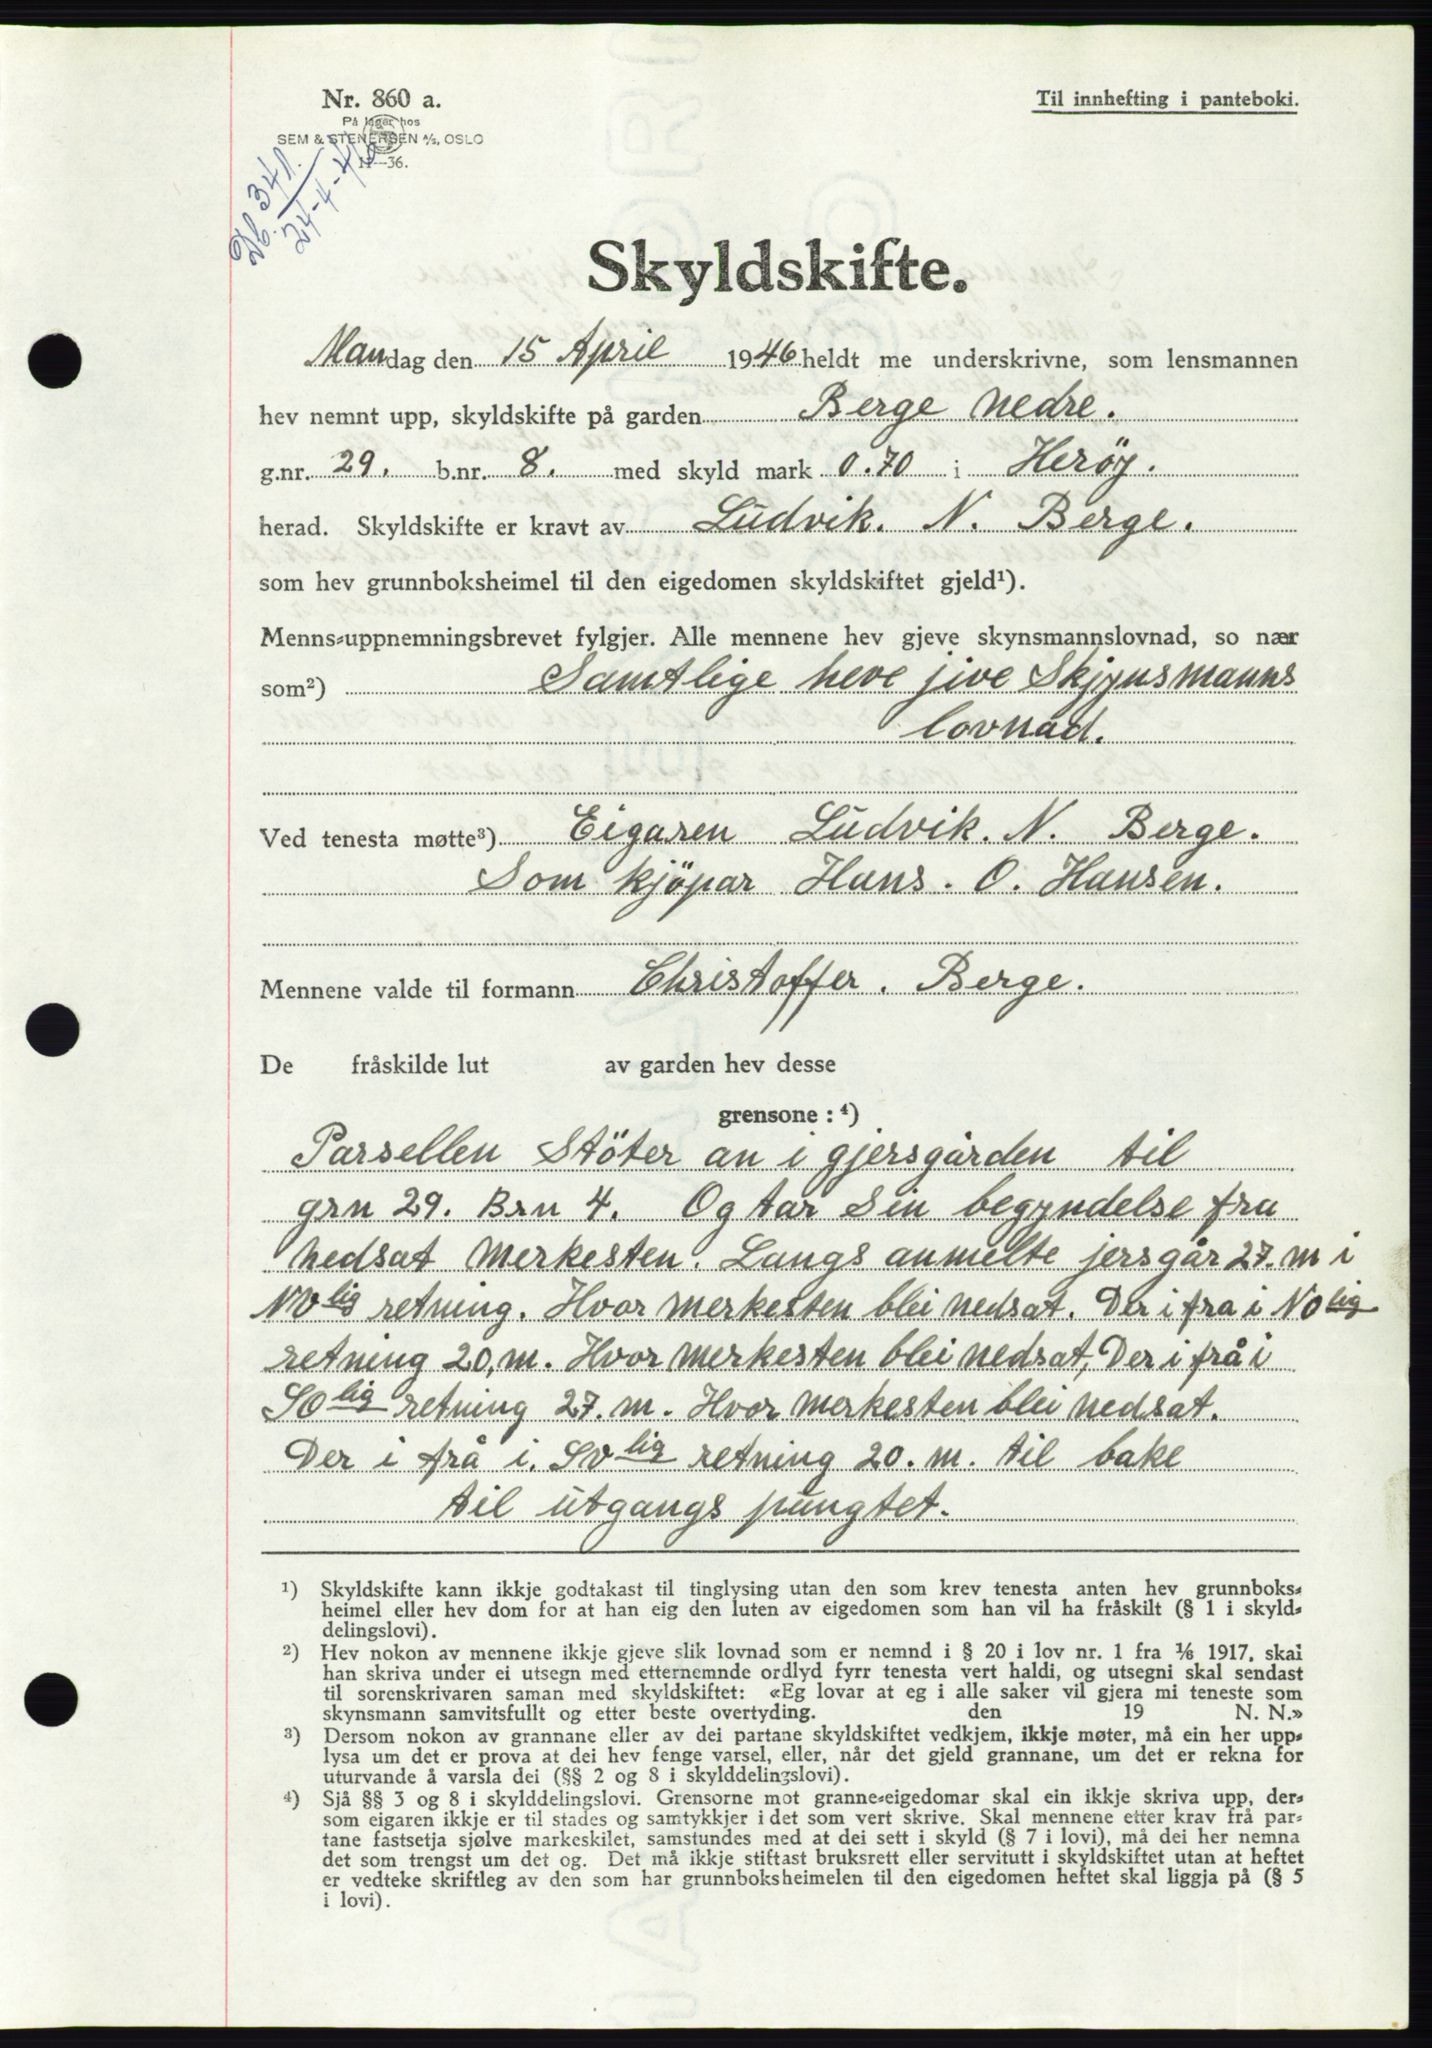 Nr. 860 a.
På lager hos
SEM & STENERSEN A/S, OSLO
11—36.
Til innhefting i panteboki.
Db. 341.
24-4-46
Skyldskifte.
Mandag den 15 April 1946 heldt me underskrivne, som lensmannen
hev nemnt upp, skyldskifte på garden Berge nedre.
g.nr. 29. b.nr. 8. med skyld mark 0.70 i Herøy.
herad. Skyldskifte er kravt av Ludvik. N. Berge.
som hev grunnboksheimel til den eigedomen skyldskiftet gjeld¹).
Menns-uppnemningsbrevet fylgjer. Alle mennene hev gjeve skynsmannslovnad, so nær
som²) Samtlige heve jive Skjynsmanns
lovnad.
Ved tenesta møtte³) Eigaren Ludvik. N. Berge.
Som kjöpar Hans. O. Hansen.
Mennene valde til formann Christoffer. Berge.
De fråskilde lut av garden hev desse
grensone: ⁴)
Parsellen Stöter an i gjersgården til
grn 29. Brn 4. Og tar Sin begyndelse fra
nedsat merkesten. Langs anmelte jersgår 27. m i
NVlig retning. Hvor merkesten blei nedsat. Der i fra i NOlig
retning 20, m. Hvor merkesten blei nedsat, Der i frå i
SOlig retning 27. m. Hvor merkesten blei nedsat.
Der i frå i. Svlig retning 20. m. til bake
til utgangs pungtet.
¹) Skyldskifte kann ikkje godtakast til tinglysing utan den som krev tenesta anten hev grunnboks-
heimel eller hev dom for at han eig den luten av eigedomen som han vil ha fråskilt (§ 1 i skyld-
delingslovi).
²) Hev nokon av mennene ikkje gjeve slik lovnad som er nemnd i § 20 i lov nr. 1 fra 1/6 1917, skal
han skriva under ei utsegn med etternemnde ordlyd fyrr tenesta vert haldi, og utsegni skal sendast
til sorenskrivaren saman med skyldskiftet: «Eg lovar at eg i alle saker vil gjera mi teneste som
skynsmann samvitsfullt og etter beste overtyding. den 19 N. N.»
³) Dersom nokon av grannane eller av dei partane skyldskiftet vedkjem, ikkje møter, må ein her upp-
lysa um det er prova at dei hev fenge varsel, eller, når det gjeld grannane, um det er rekna for
uturvande å varsla dei (§§ 2 og 8 i skylddelingslovi).
⁴) Sjå §§ 3 og 8 i skylddelingslovi. Grensorne mot granne-eigedomar skal ein ikkje skriva upp, der-
som eigaren ikkje er til stades og samtykkjer i det som vert skrive. Skal mennene etter krav frå par-
tane fastsetja sjølve markeskilet, samstundes med at dei sett i skyld (§ 7 i lovi), må dei her nemna
det som trengst um det og. Det må ikkje stiftast bruksrett eller servitutt i skyldskiftet utan at heftet
er vedteke skriftleg av den som har grunnboksheimelen til den eigedomen heftet skal liggja på (§ 5
i lovi).